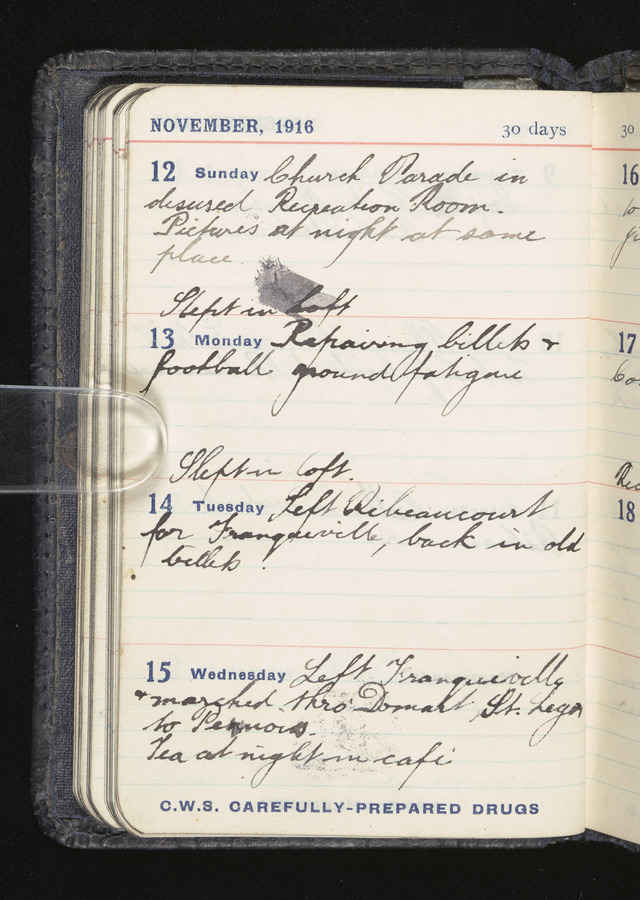 NOVEMBER, 1916 30 days
12 Sunday Church Parade in
disused Recreation Room.
Pictures at night at same
place.
Slept in loft
13 Monday Repairing billets &
football ground fatigue
Slept in loft.
14 Tuesday Left Ribeaucourt
for Franqueville, back in old
billets.
15 Wednesday Left Franqueville
& marched thro' Domart, St. Leger
to
Tea at night in café
C.W.S. CAREFULLY-PREPARED DRUGS
30
16
to
17
18